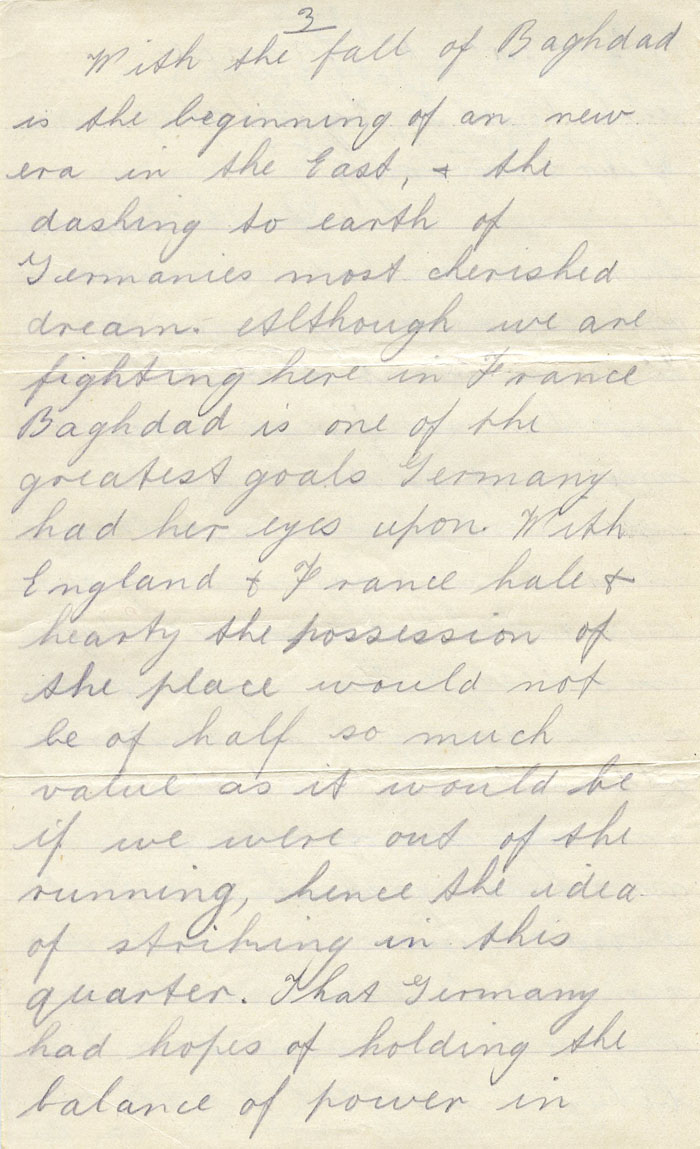 3
With the fall of Baghdad
is the beginning of an new
era in the East, & the
dashing to earth of
Germanies most cherished
dream. Although we are
fighting here in France
Baghdad is one of the
greatest goals Germany
had her eyes upon. With
England & France hale &
hearty the possession of
the place would not
be of half so much
value as it would be
if we were out of the
running, hence the idea
of striking in this
quarter. That Germany
had hopes of holding the
balance of power in